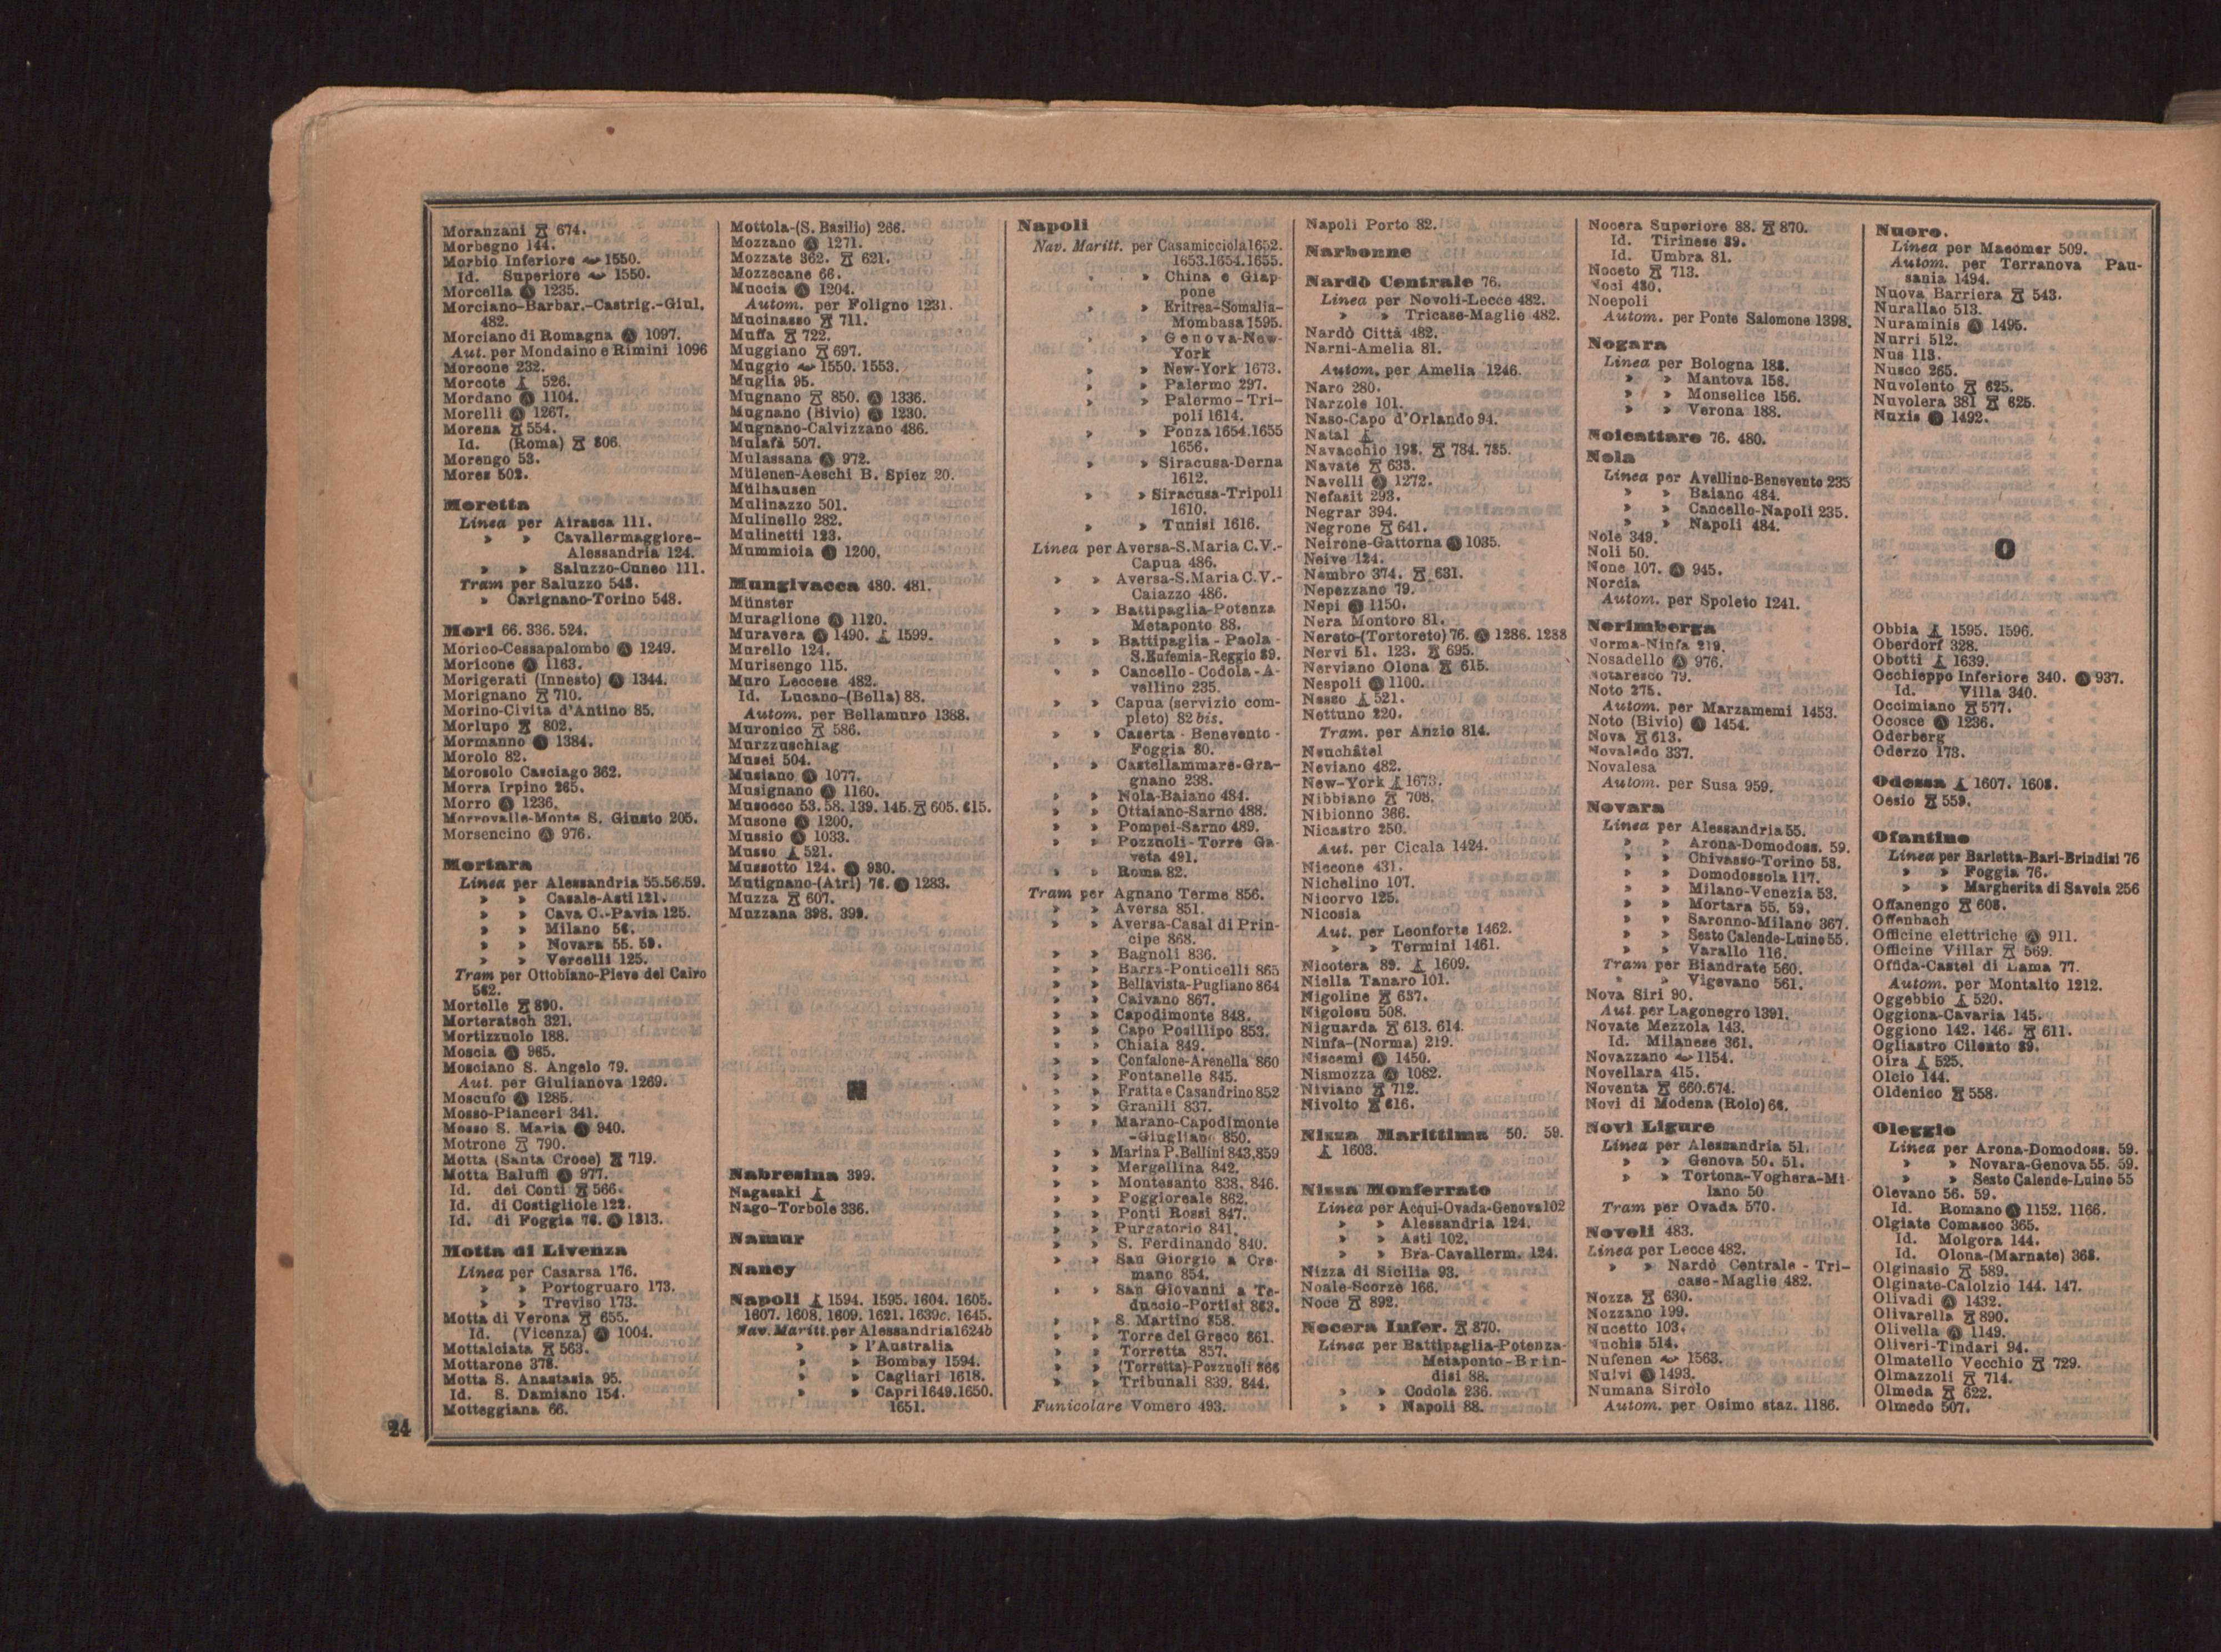 Moranzani 674.
Morbegno 144.
Morbio Inferiore 1550.
Id. Superiore 1550.
Morcella 1235.
Morciano-Barbar.-Castrig.-Giul.
482.
Morciano di Romagna 1097.
Aut. per Mondaino e Rimini 1096
Morcone 232.
Morcote 526.
Mordano 1104.
Morelli 1267.
Morena 554.
Id. (Roma) 806.
Morengo 53.
Mores 502.
Moretta
Linea per Airasca 111.
» » Cavallermaggiore-
Alessandria 124.
» » Saluzzo-Cuneo 111.
Tram per Saluzzo 548.
» Carignano-Torino 548.
Mori 66. 336. 524.
Morico-Cessapalombo 1249.
Moricone 1163.
Morigerati (Innesto) 1344.
Morignano 710.
Morino-Civita d'Antino 85.
Morlupo 802.
Mormanno 1384.
Morolo 82.
Morosolo Casciago 362.
Morra Irpino 265.
Morro 1236.
Morrovalle-Monte S. Giusto 205.
Morsencino 976.
Mortara
Linea per Alessandria 55.56.59.
» » Casale-Asti 121.
» » Cava C.-Pavia 125.
» » Milano 56.
» » Novara 55. 59.
» » Vercelli 125.
Tram per Ottobiano-Pieve del Cairo
562.
Mortelle 890.
Morteratsch 321.
Mortizzuolo 188.
Moscia 965.
Mosciano S. Angelo 79.
Aut. per Giulianova 1269.
Moscufo 1285.
Mosso-Pianceri 341.
Mosso S. Maria 940.
Motrone 790.
Motta (Santa Croce) 719.
Motta Baluffi 977.
Id. dei Conti 566.
Id. di Costigliole 122.
Id. di Foggia 76. 1313.
Motta di Livenza
Linea per Casarsa 176.
» » Portogruaro 173.
» » Treviso 173.
Motta di Verona 655.
Id. (Vicenza) 1004.
Mottalciata 563.
Mottarone 378.
Motta S. Anastasia 95.
Id. S. Damiano 154.
Motteggiana 66.
24
Mottola-(S. Basilio) 266.
Mozzano 1271.
Mozzate 362. 621.
Mozzecane 66.
Muccia 1204.
Autom. per Foligno 1231.
Mucinasso 711.
Muffa 722.
Muggiano 697.
Muggio 1550. 1553.
Muglia 95.
Mugnano 850. 1336.
Mugnano (Bivio) 1230.
Mugnano-Calvizzano 486.
Mulafà 507.
Mulassana 972.
Mülenen-Aeschi B. Spiez 20.
Mülhausen
Mulinazzo 501.
Mulinello 282.
Mulinetti 123.
Mummiola 1200.
Mungivacca 480. 481.
Münster
Muraglione 1120.
Muravera 1490. 1599.
Murello 124.
Murisengo 115.
Muro Leccese 482.
Id. Lucano-(Bella) 88.
Autom. per Bellamuro 1388.
Muronico 586.
Murzzuschiag
Musei 504.
Musiano 1077.
Musignano 1160.
Musocco 53. 58. 139. 145. 605. 615.
Musone 1200.
Mussio 1033.
Musso 521.
Mussotto 124. 980.
Mutignano-(Atri) 76. 1283.
Muzza 607.
Muzzana 398. 399.
N
Nabresina 399.
Nagasaki
Nago-Torbole 336.
Namur
Nancy
Napoli 1594. 1595. 1604. 1605.
1607. 1608. 1609. 1621. 1639c. 1645.
Nav. Maritt. per Alessandria 1624b
» » l'Australia
» » Bombay 1594.
» » Cagliari 1618.
» » Capri 1649.1650.
1651.
Napoli
Nav. Maritt. per Casamicciola 1652.
1653.1654.1655.
» » China e Giap-
pone
» » Eritrea-Somalia-
Mombasa 1595.
» » Genova-New-
York
» » New-York 1673.
» » Palermo 297.
» » Palermo-Tri-
poli 1614.
» » Ponza 1654.1655
1656.
» » Siracusa-Derna
1612.
» » Siracusa-Tripoli
1610.
» » Tunisi 1616.
Linea per Aversa-S.Maria C.V.-
Capua 486.
» » Aversa-S.Maria C.V.-
Caiazzo 486.
» » Battipaglia-Potenza
Metaponto 88.
» » Battipaglia-Paola-
S.Eufemia-Reggio 89.
» » Cancello-Codola-A-
vellino 235.
» » Capua (servizio com-
pleto) 82 bis.
» » Caserta-Benevento-
Foggia 80.
» » Castellammare-Gra-
gnano 238.
» » Nola-Baiano 484.
» » Ottaiano-Sarno 488.
» » Pompei-Sarno 489.
» » Pozzuoli-Torre Ga-
veta 491.
» » Roma 82.
Tram per Agnano Terme 856.
» » Aversa 851.
» » Aversa-Casal di Prin-
cipe 868.
» » Bagnoli 836.
» » Barra-Ponticelli 865
» » Bellavista-Pugliano 864
» » Caivano 867.
» » Capodimonte 848.
» » Capo Posillipo 853.
» » Chiaia 849.
» » Confalone-Arenella 860
» » Fontanelle 845.
» » Fratta e Casandrino 852
» » Granili 837.
» » Marano-Capodimonte
-Giugliano 850.
» » Marina P.Bellini 843,859
» » Mergellina 842.
» » Montesanto 838. 846.
» » Poggioreale 862.
» » Ponti Rossi 847.
» » Purgatorio 841.
» » S. Ferdinando 840.
» » San Giorgio a Cre-
mano 854.
» » San Giovanni a Te-
duccio-Portici 863.
» » S. Martino 858.
» » Torre del Greco 861.
» » Torretta 857.
» » (Torretta)-Pozzuoli 866
» » Tribunali 839. 844.
Funicolare Vomero 493.
Napoli Porto 82.
Narbonne
Nardò Centrale 76.
Linea per Novoli-Lecce 482.
» » Tricase-Maglie 482.
Nardò Città 482.
Narni-Amelia 81.
Autom. per Amelia 1246.
Naro 280.
Narzole 101.
Naso-Capo d'Orlando 94.
Natal
Navacchio 198. 784. 785.
Navate 633.
Navelli 1272.
Nefasit 293.
Negrar 394.
Negrone 641.
Neirone-Gattorna 1035.
Neive 124.
Nembro 374. 631.
Nepezzano 79.
Nepi 1150.
Nera Montoro 81.
Nereto-(Tortoreto) 76. 1286. 1288
Nervi 51. 123. 695.
Nerviano Olona 615.
Nespoli 1100.
Nesso 521.
Nettuno 220.
Tram. per Anzio 814.
Neuchâtel
Neviano 482.
New-York 1673.
Nibbiano 708.
Nibionno 366.
Nicastro 250.
Aut. per Cicala 1424.
Niccone 431.
Nichelino 107.
Nicorvo 125.
Nicosia
Aut. per Leonforte 1462.
» » Termini 1461.
Nicotera 89. 1609.
Niella Tanaro 101.
Nigoline 637.
Nigolosu 508.
Niguarda 613. 614.
Ninfa-(Norma) 219.
Niscemi 1450.
Nismozza 1082.
Niviano 712.
Nivolto 616.
Nizza Marittima 50. 59.
1603.
Nizza Monferrato
Linea per Acqui-Ovada-Genova 102
» » Alessandria 124.
» » Asti 102.
» » Bra-Cavallerm. 124.
Nizza di Sicilia 93.
Noale-Scorzè 166.
Noce 892.
Nocera Infer. 870.
Linea per Battipaglia-Potenza-
Metaponto-Brin-
disi 88.
» » Codola 236.
» » Napoli 88.
Nocera Superiore 88. 870.
Id. Tirinese 89.
Id. Umbra 81.
Noceto 713.
Noci 480.
Noepoli
Autom. per Ponte Salomone 1398.
Nogara
Linea per Bologna 188.
» » Mantova 156.
» » Monselice 156.
» » Verona 188.
Noicattaro 76. 480.
Nola
Linea per Avellino-Benevento 235
» » Baiano 484.
» » Cancello-Napoli 235.
» » Napoli 484.
Nole 349.
Noli 50.
None 107. 945.
Norcia
Autom. per Spoleto 1241.
Norimberga
Norma-Ninfa 219.
Nosadello 976.
Notaresco 79.
Noto 275.
Autom. per Marzamemi 1453.
Noto (Bivio) 1454.
Nova 613.
Novaledo 337.
Novalesa
Autom. per Susa 959.
Novara
Linea per Alessandria 55.
» » Arona-Domodoss. 59.
» » Chivasso-Torino 53.
» » Domodossola 117.
» » Milano-Venezia 53.
» » Mortara 55. 59.
» » Saronno-Milano 367.
» » Sesto Calende-Luino 55.
» » Varallo 116.
Tram per Biandrate 560.
» » Vigevano 561.
Nova Siri 90.
Aut. per Lagonegro 1391.
Novate Mezzola 143.
Id. Milanese 361.
Novazzano 1154.
Novellara 415.
Noventa 660.674.
Novi di Modena (Rolo) 66.
Novi Ligure
Linea per Alessandria 51.
» » Genova 50. 51.
» » Tortona-Voghera-Mi-
lano 50
Tram per Ovada 570.
Novoli 483.
Linea per Lecce 482.
» » Nardò Centrale-Tri-
case-Maglie 482.
Nozza 630.
Nozzano 199.
Nucetto 103.
Nuchis 514.
Nufenen 1563.
Nulvi 1493.
Numana Sirolo
Autom. per Osimo staz. 1186.
Nuoro.
Linea per Macomer 509.
Autom. per Terranova Pau-
sania 1494.
Nuova Barriera 543.
Nurallao 513.
Nuraminis 1495.
Nurri 512.
Nus 113.
Nusco 265.
Nuvolento 625.
Nuvolera 381 625.
Nuxis 1492.
O
Obbia 1595. 1596.
Oberdorf 328.
Obotti 1639.
Occhieppo Inferiore 340. 937.
Id. Villa 340.
Occimiano 577.
Ocosce 1236.
Oderberg
Oderzo 173.
Odessa 1607. 1608.
Oesio 559.
Ofantino
Linea per Barletta-Bari-Brindisi 76
» » Foggia 76.
» » Margherita di Savoia 256
Offanengo 608.
Offenbach
Officine elettriche 911.
Officine Villar 569.
Offida-Castel di Lama 77.
Autom. per Montalto 1212.
Oggebbio 520.
Oggiona-Cavaria 145.
Oggiono 142. 146. 611.
Ogliastro Cilento 89.
Oira 525.
Olcio 144.
Oldenico 558.
Oleggio
Linea per Arona-Domodoss. 59.
» » Novara-Genova 55. 59.
» » Sesto Calende-Luino 55
Olevano 56. 59.
Id. Romano 1152. 1166.
Olgiate Comasco 365.
Id. Molgora 144.
Id. Olona-(Marnate) 368.
Olginasio 589.
Olginate-Calolzio 144. 147.
Olivadi 1432.
Olivarella 890.
Olivella 1149.
Oliveri-Tindari 94.
Olmatello Vecchio 729.
Olmazzoli 714.
Olmeda 622.
Olmedo 507.